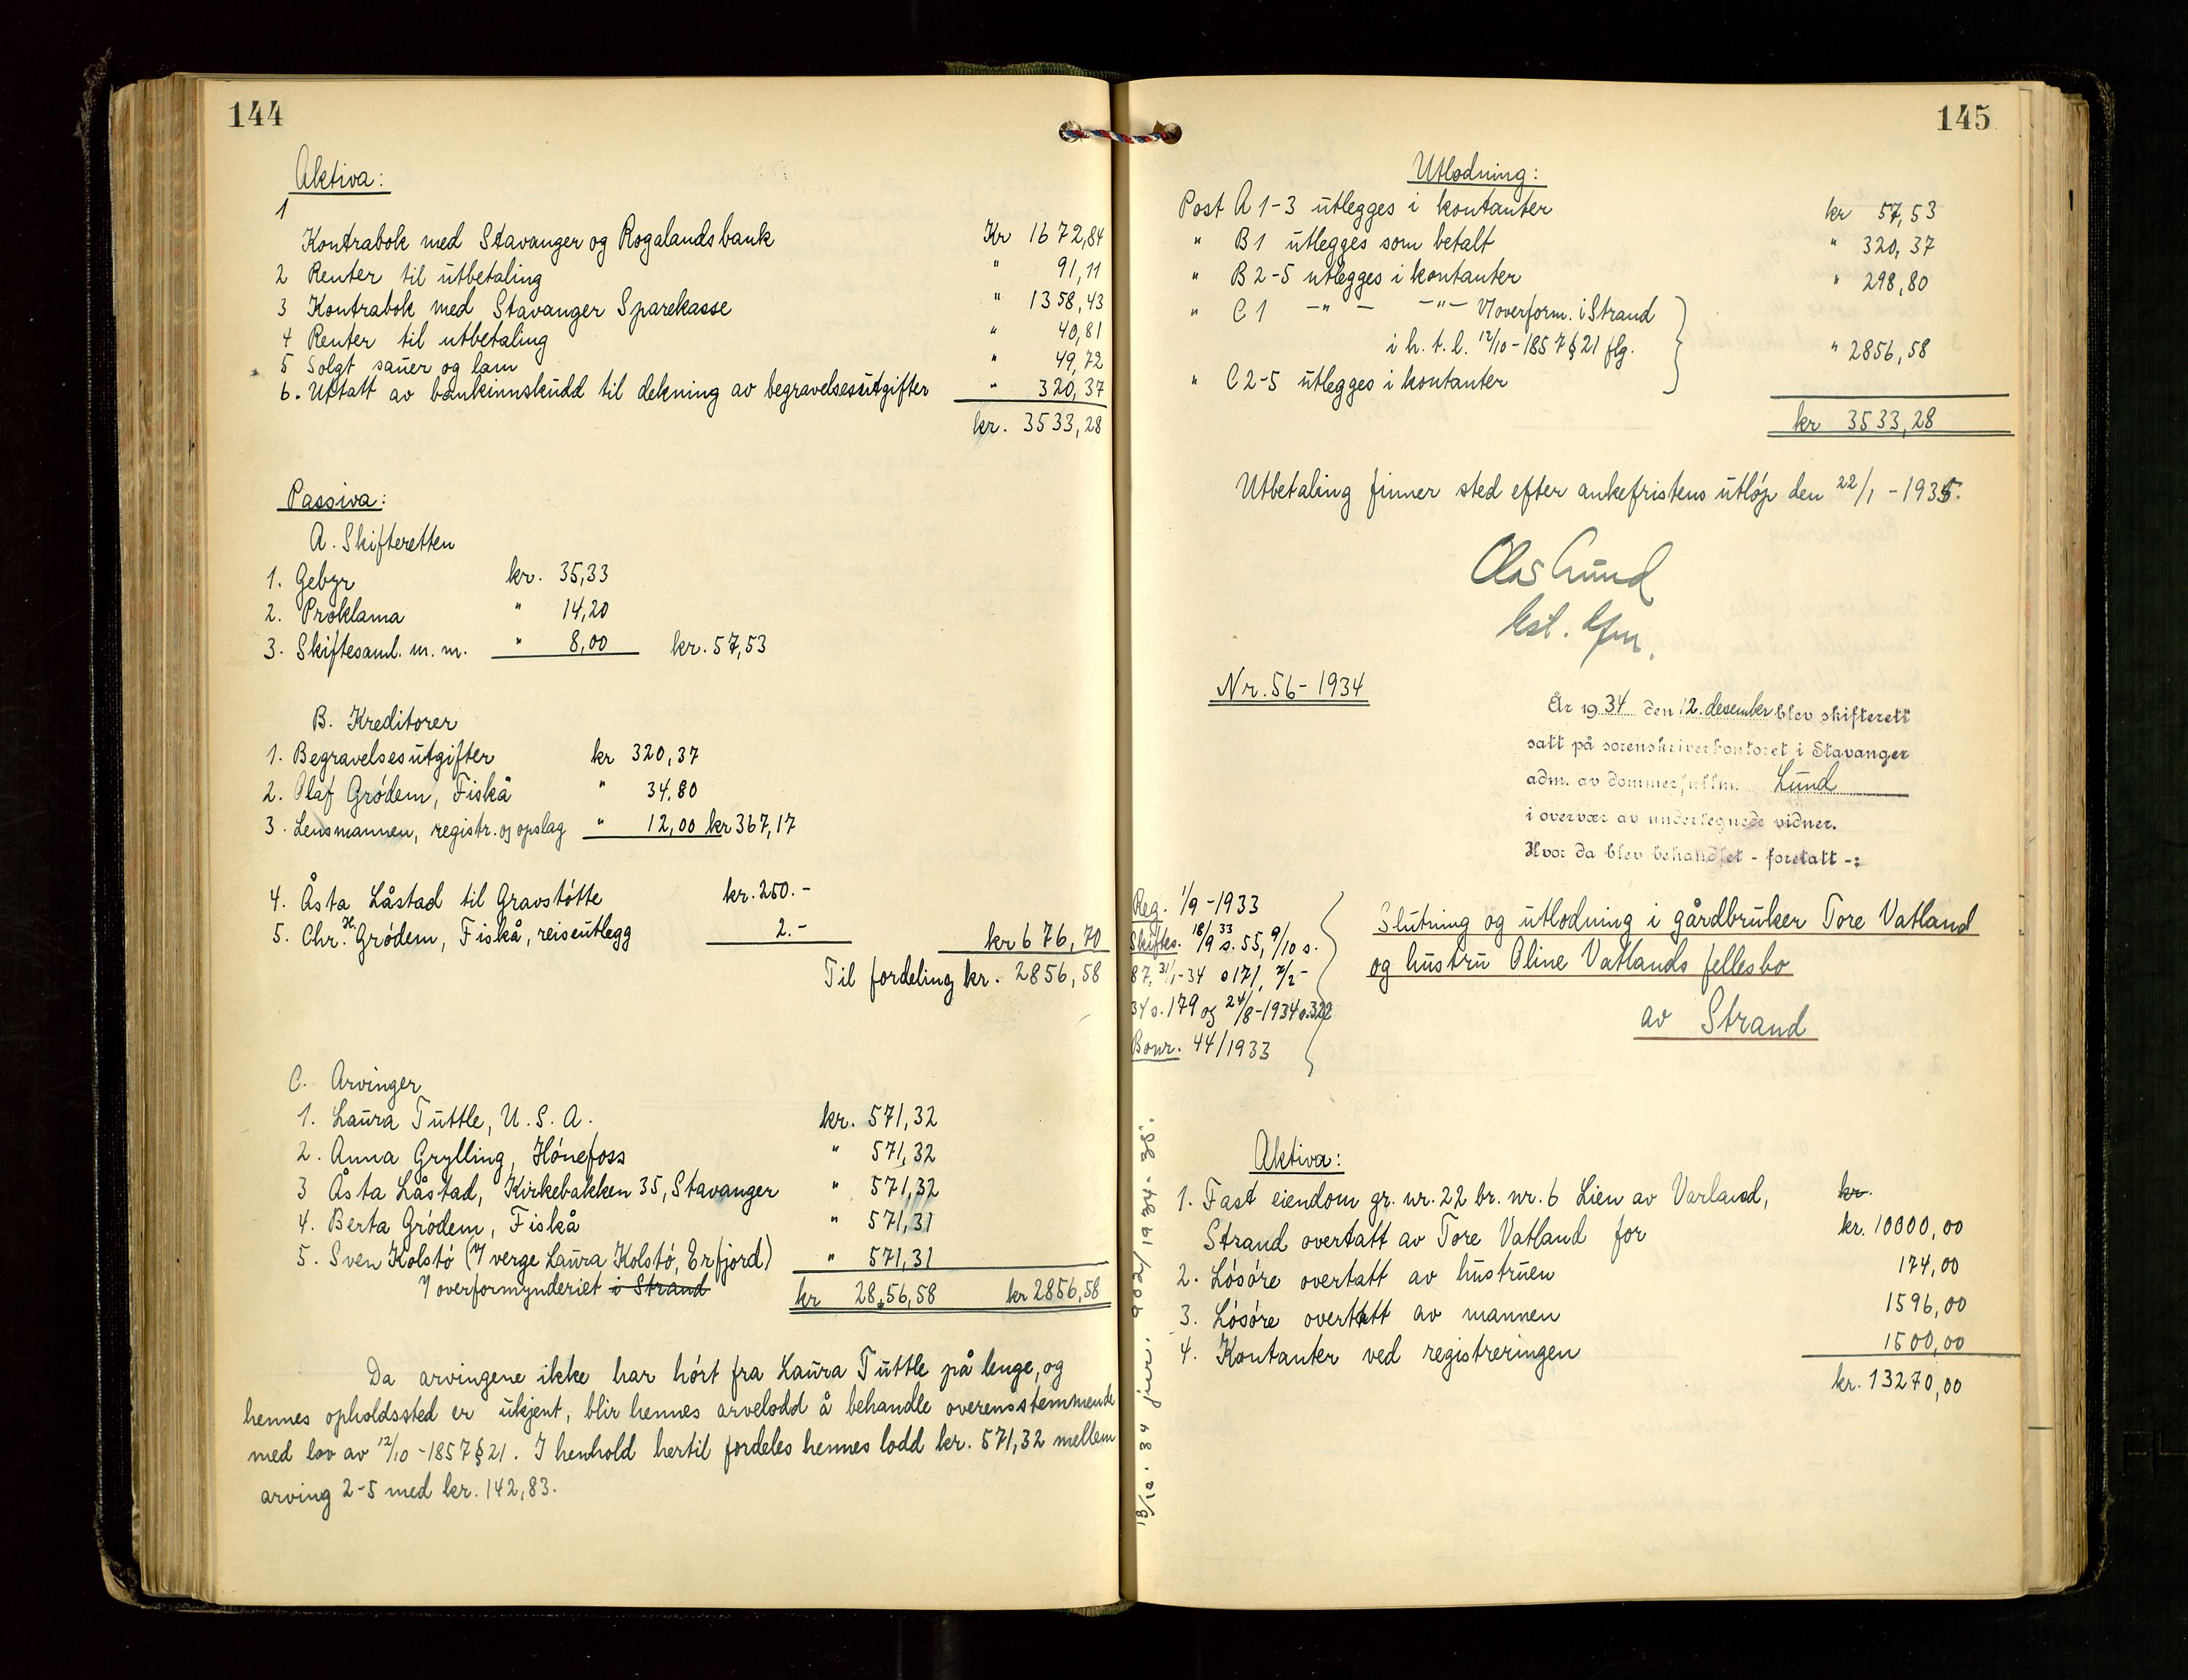 144
Aktiva:
1
Kontrabok med Stavanger og Rogalandsbank Kr 1672,84
2 Renter til utbetaling " 91,11
3 Kontrabok med Stavanger Sparekasse " 1358,43
4 Renter til utbetaling " 40,81
5 Solgt sauer og lam " 49,72
6. Uttatt av bankinnskudd til dekning av begravelsesutgifter " 320,37
kr. 3533,28
Passiva:
A. Skifteretten
1. Gebyr kr. 35,33
2. Proklama " 14,20
3. Skiftesaml. m. m. " 8,00 kr. 57,53
B. Kreditorer
1. Begravelsesutgifter kr 320,37
2. Olaf Grödem, Fiskå " 34,80
3. Lensmannen, registr. og opslag " 12,00 kr 367,17
4. Åsta Låstad til Gravstötte kr. 250.-
5. Chr. H. Grödem, Fiskå, reiseutlegg 2.- kr 676,70
Til fordeling kr. 2856,58
C. Arvinger
1. Laura Tuttle, U. S. A. kr. 571,32
2. Anna Grylling, Hönefoss " 571,32
3 Åsta Låstad, Kirkebakken 35, Stavanger " 571,32
4. Berta Grödem, Fiskå " 571,31
5. Sven Kolstö (V/ verge Laura Kolstö, Erfjord) " 571,31
V/ overformynderiet i Strand kr 28,56,58 kr 2856,58
Da arvingene ikke har hört fra Laura Tuttle på lenge, og
hennes opholdssted er ukjent, blir hennes arvelodd å behandle overensstemmende
med lov av 12/10 - 1857 § 21. I henhold hertil fordeles hennes lodd kr. 571,32 mellem
arving 2-5 med kr. 142,83.
145
Utlodning:
Post A 1-3 utlegges i kontanter kr 57,53
" B 1 utlegges som betalt " 320,37
" B 2-5 utlegges i kontanter " 298,80
" C 1 -"- -"- V/overform. i Strand
i h. t. l. 12/10 - 1857 § 21 flg. " 2856,58
" C 2-5 utlegges i kontanter
kr 3533,28
Utbetaling finner sted efter ankefristens utlöp den 22/1 - 1935.
Olas Lund
kst. 
Nr. 56 - 1934
År 1934 den 12. desember blev skifterett
satt på sorenskriverkontoret i Stavanger
adm. av dommerfullm. Lund
i overvær av undertegnede vidner.
Hvor da blev behandlet - foretatt -:
Reg. 1/9 - 1933
Skiftes. 18/9 33 s. 55, 9/10 s.
87, 31/1 - 34 s 171, 7/2 -
34 s. 179 og 24/8 - 1934 s. 322
Bonr. 44/1933
Slutning og utlodning i gårdbruker Tore Vatland
og hustru Oline Vatlands fellesbo
av Strand
13/12. 34 jnr. 9002/1934 - 38'.
Aktiva:
1. Fast eiendom gr. nr. 22 br. nr. 6 Lien av Varland, kr.
Strand overtatt av Tore Vatland for kr. 10000,00
2. Lösöre overtatt av hustruen 174,00
3. Lösöre overtatt av mannen 1596,00
4. Kontanter ved registreringen 1500,00
kr. 13270,00